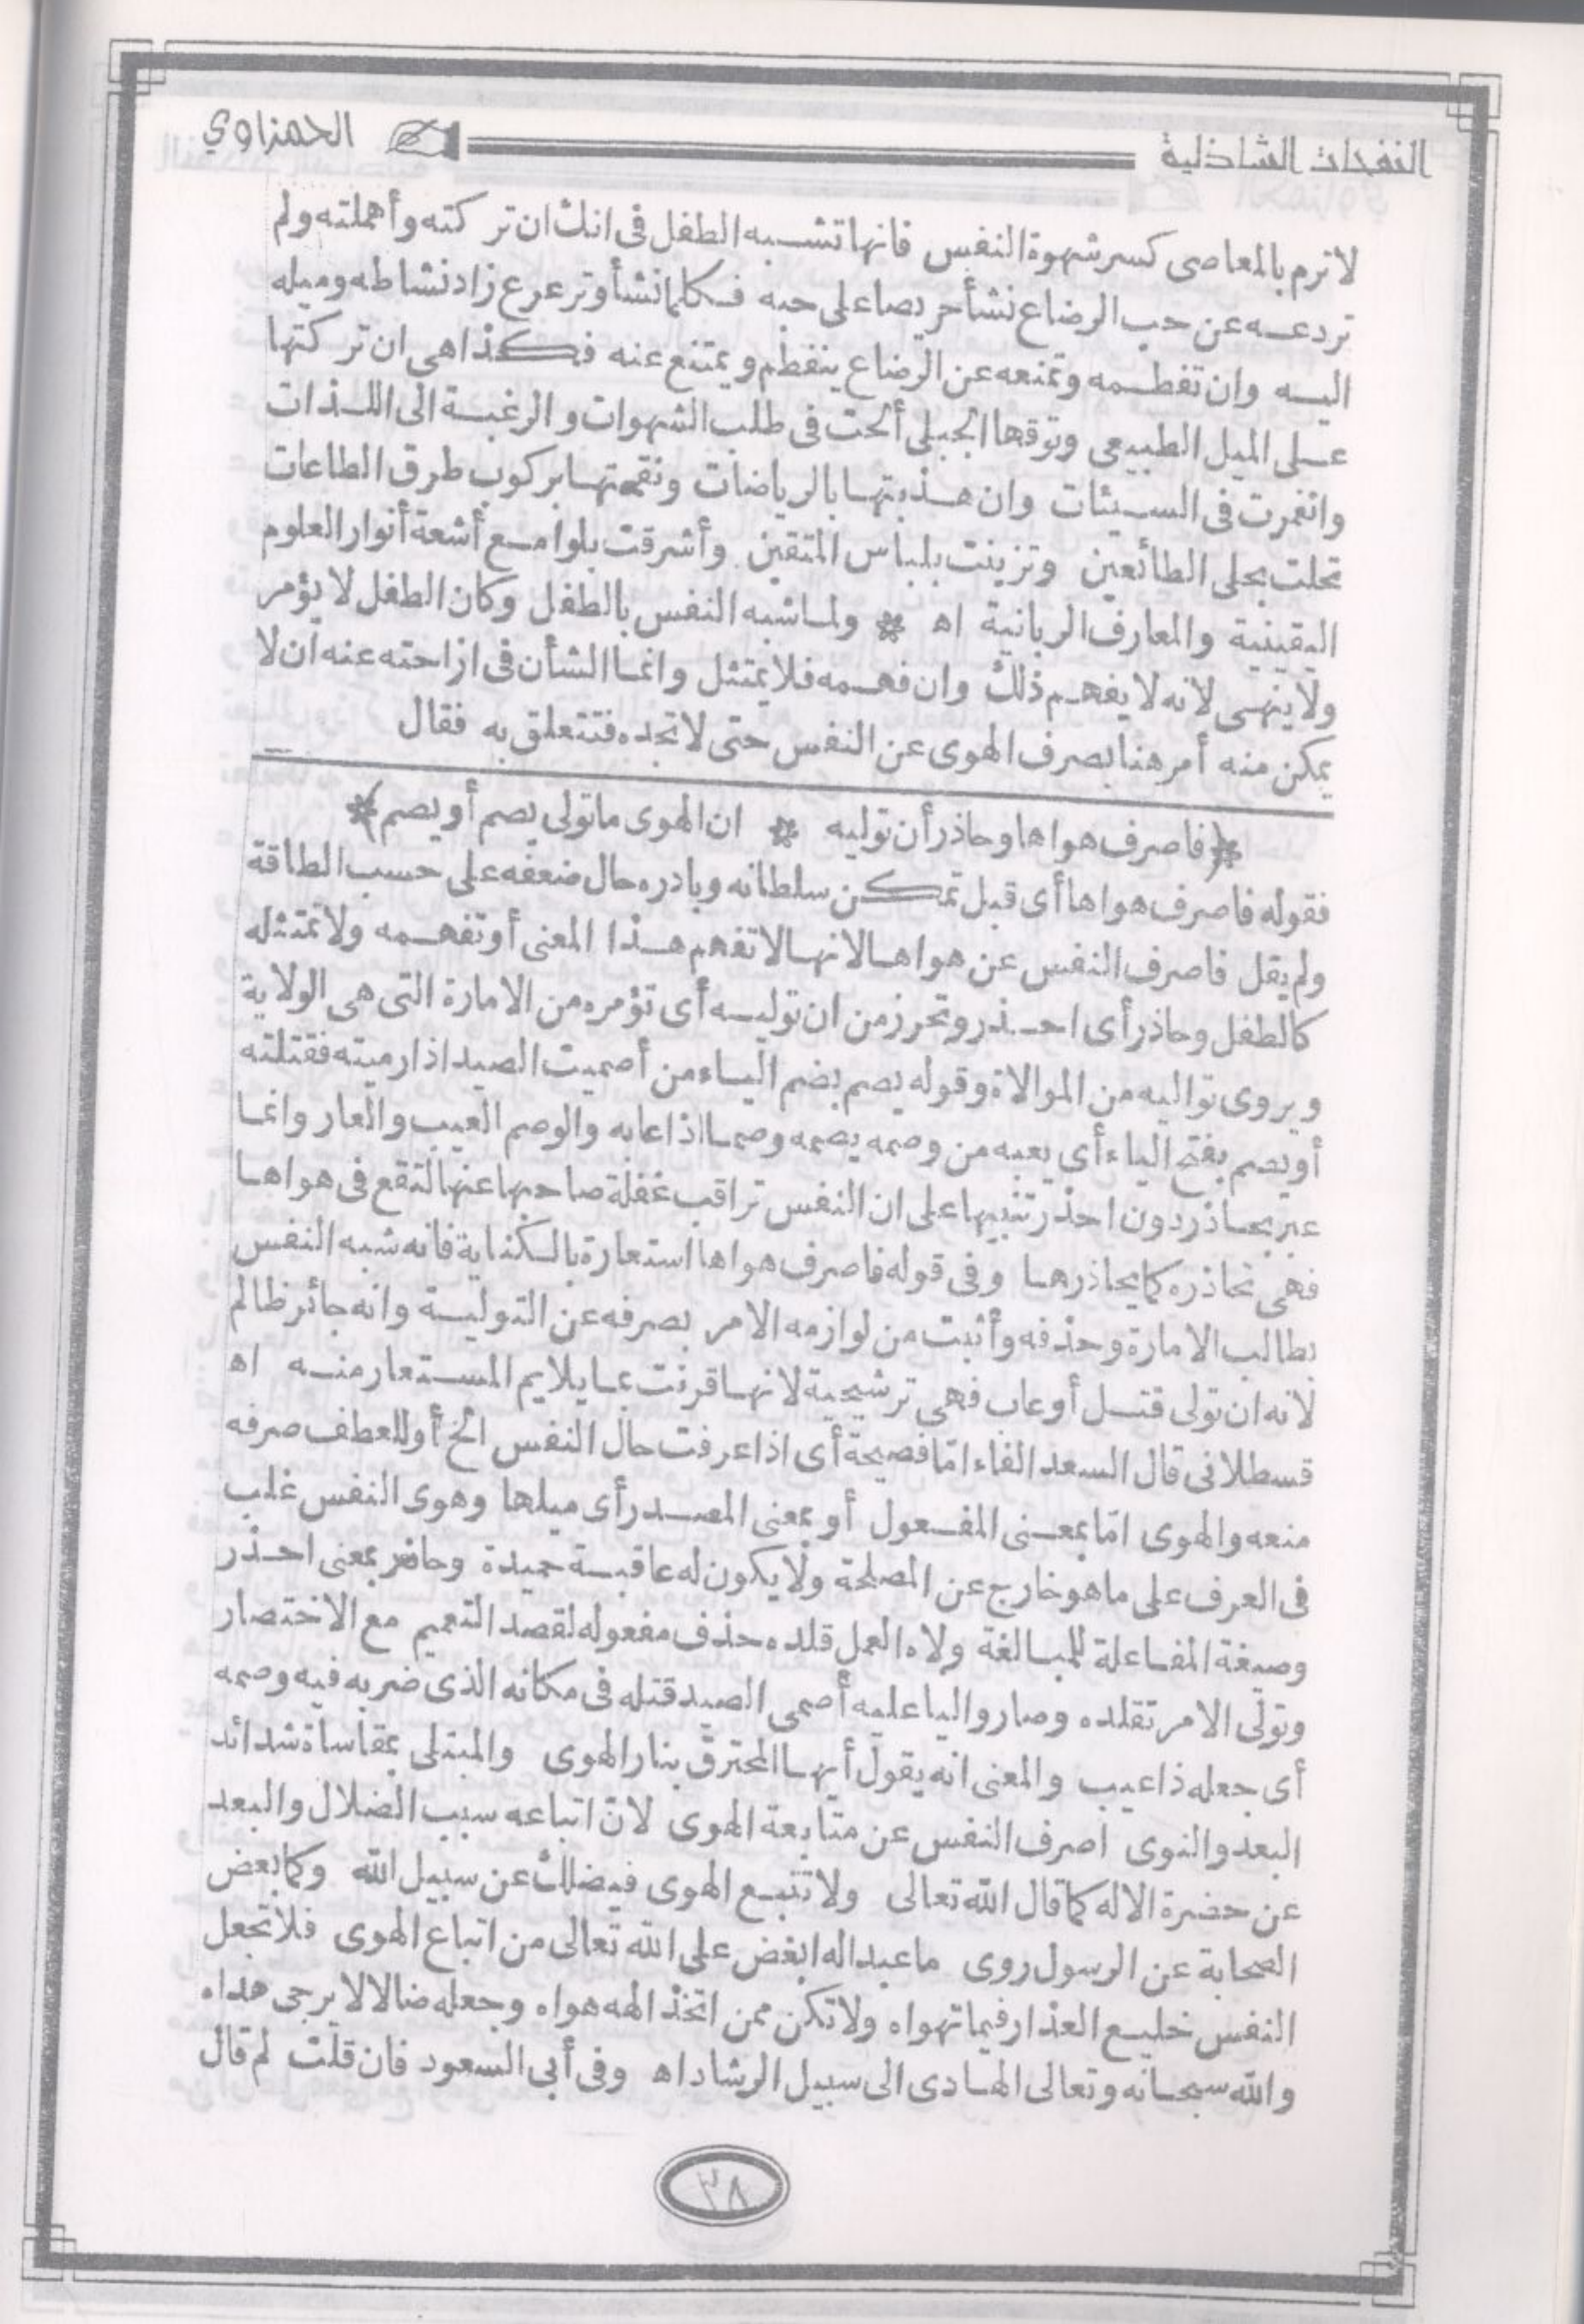 النفحات الشاذلية
الحمزاوي
لا ترم بالمعاصى كسر شهوة النفس فانها تشبه الطفل فى انك ان تركته وأهملته ولم
تردعه عن حب الرضاع نشأ حريصا على حبه فكلما نشأ وترعرع زاد نشاطه وميله
اليه وان تفطمه وتمنعه عن الرضاع ينفطم ويمتنع عنه فكذا هى ان تركتها
على الميل الطبيعى وتوقها الجبلى ألحت فى طلب الشهوات والرغبة الى اللذات
وانغمرت فى السيئات وان هذبتها بالرياضات ونقمتها بركوب طرق الطاعات
تحلت بحلى الطائعين وتزينت بلباس المتقين وأشرقت بلوامع أشعة أنوار العلوم
اليقينية والمعارف الربانية اه * ولما شبه النفس بالطفل وكان الطفل لا يؤمر
ولا ينهى لانه لا يفهم ذلك وان فهمه فلا يمتثل وانما الشأن فى ازاحته عنه ان لا
يمكن منه أمر هنا بصرف الهوى عن النفس حتى لا تجده فتتعلق به فقال
﴿فاصرف هواها وحاذر أن توليه * ان الهوى ما تولى يصم أو يصم﴾
فقوله فاصرف هواها أى قبل تمكن سلطانه وبادره حال ضعفه على حسب الطاقة
ولم يقل فاصرف النفس عن هواها لانها لا تفهم هذا المعنى أو تفهمه ولا تمتثله
كالطفل وحاذر أى احذر وتحرز من ان توليه أى تؤمره من الامارة التى هى الولاية
ويروى تواليه من الموالاة وقوله يصم بضم الياء من أصميت الصيد اذا رميته فقتلته
أو يصم بفتح الياء أى يعبه من وصمه يصمه وصما اذا عابه والوصم العيب والعار وانما
عبر بحاذر دون احذر تنبيها على ان النفس تراقب غفلة صاحبها عنها لتقع فى هواها
فهى تحاذره كما يحاذرها وفى قوله فاصرف هواها استعارة بالكناية فانه شبه النفس
بطالب الامارة وحذفه وأثبت من لوازمه الامر بصرفه عن التولية وانه جائر ظالم
لانه ان تولى قتل أو عاب فهى ترشيحية لانها قرنت بما يلايم المستعار منه اه
قسطلانى قال السعد الفاء امّا فصيحة أى اذا عرفت حال النفس الخ أو للعطف صرفه
منعه والهوى امّا بمعنى المفعول أو بمعنى المصدر أى ميلها وهوى النفس غلب
فى العرف على ما هو خارج عن المصلحة ولا يكون له عاقبة حميدة وحاذر بمعنى احذر
وصيغة المفاعلة للمبالغة ولاه العمل قلده حذف مفعوله لقصد التعميم مع الاختصار
وتولّى الامر تقلده وصار واليا عليه أصمى الصيد قتله فى مكانه الذى ضربه فيه وصمه
أى جعله ذا عيب والمعنى انه يقول أيها المحترق بنار الهوى والمبتلى بمقاساة شدائد
البعد والنوى اصرف النفس عن متابعة الهوى لانّ اتباعه سبب الضلال والبعد
عن حضرة الاله كما قال الله تعالى ولا تتبع الهوى فيضلك عن سبيل الله وكما بعض
الصحابة عن الرسول روى ما عبد اله ابغض على الله تعالى من اتباع الهوى فلا تجعل
النفس خليع العذار فيما تهواه ولا تكن ممن اتخذ الهه هواه وجعله ضالا لا يرجى هداه
والله سبحانه وتعالى الهادى الى سبيل الرشاد اه وفى أبى السعود فان قلت لم قال
٣٨